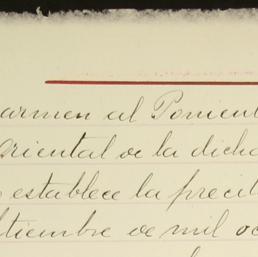 armen al Ponient
oriental de la dicha
establece la precit
tiembre de mil oc